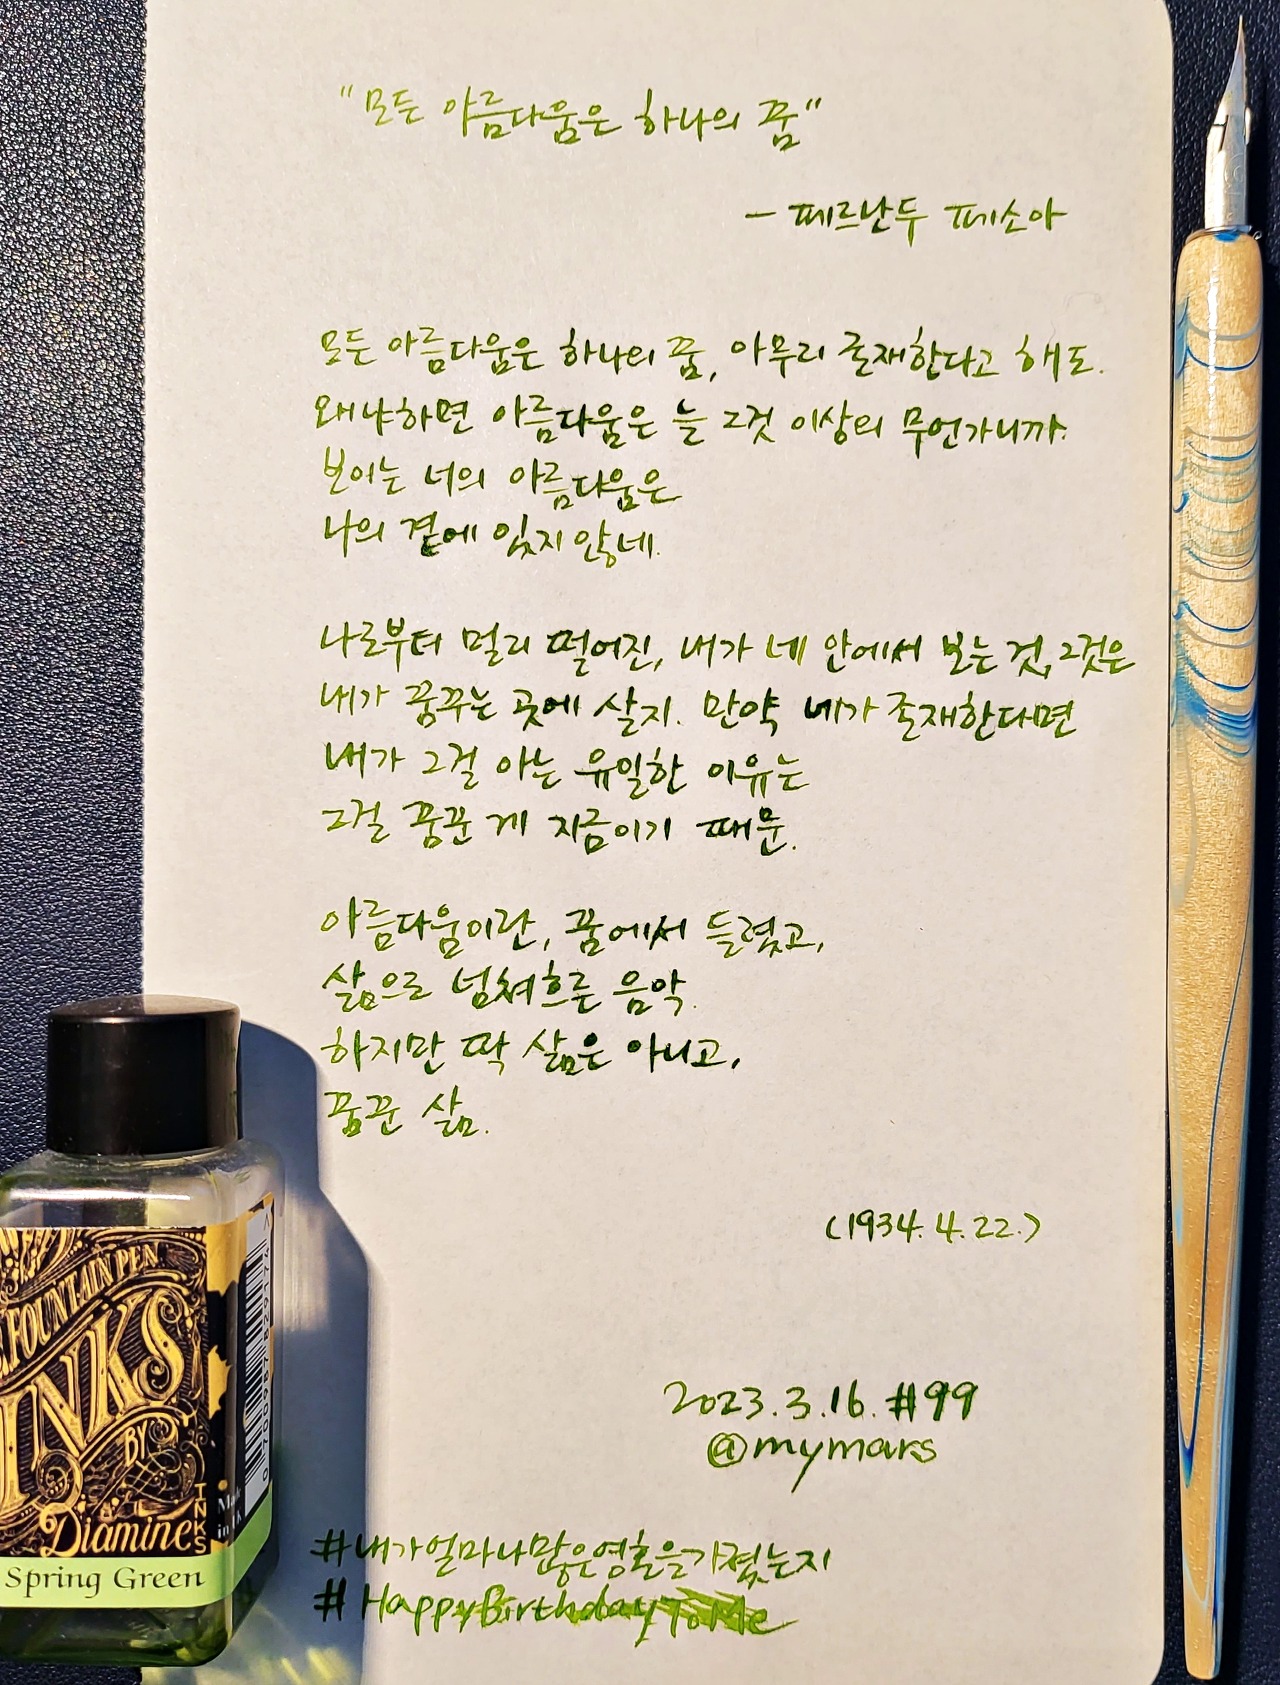 "모든 아름다움은 하나의 꿈"
- 페르난두 페소아
모든 아름다움은 하나의 꿈, 아무리 존재한다고 해도.
왜냐하면 아름다움은 늘 그것 이상의 무언가니까.
보이는 너의 아름다움은
나의 곁에 있지 않네.
나로부터 멀리 떨어진, 내가 네 안에서 보는 것, 그것은
내가 꿈꾸는 곳에 살지. 만약 네가 존재한다면
내가 그걸 아는 유일한 이유는
그걸 꿈꾼 게 지금이기 때문.
아름다움이란, 꿈에서 들렸고,
삶으로 넘쳐흐른 음악.
하지만 딱 삶은 아니고,
꿈꾼 삶.
(1934.4.22.)
2023.3.16. #99
@mymars
#내가얼마나많은영혼을가졌는지
#HappyBirthdayToMe
FOUNTAIN PEN
INKS
BY
Diamine
INKS
Made
in
Spring Green